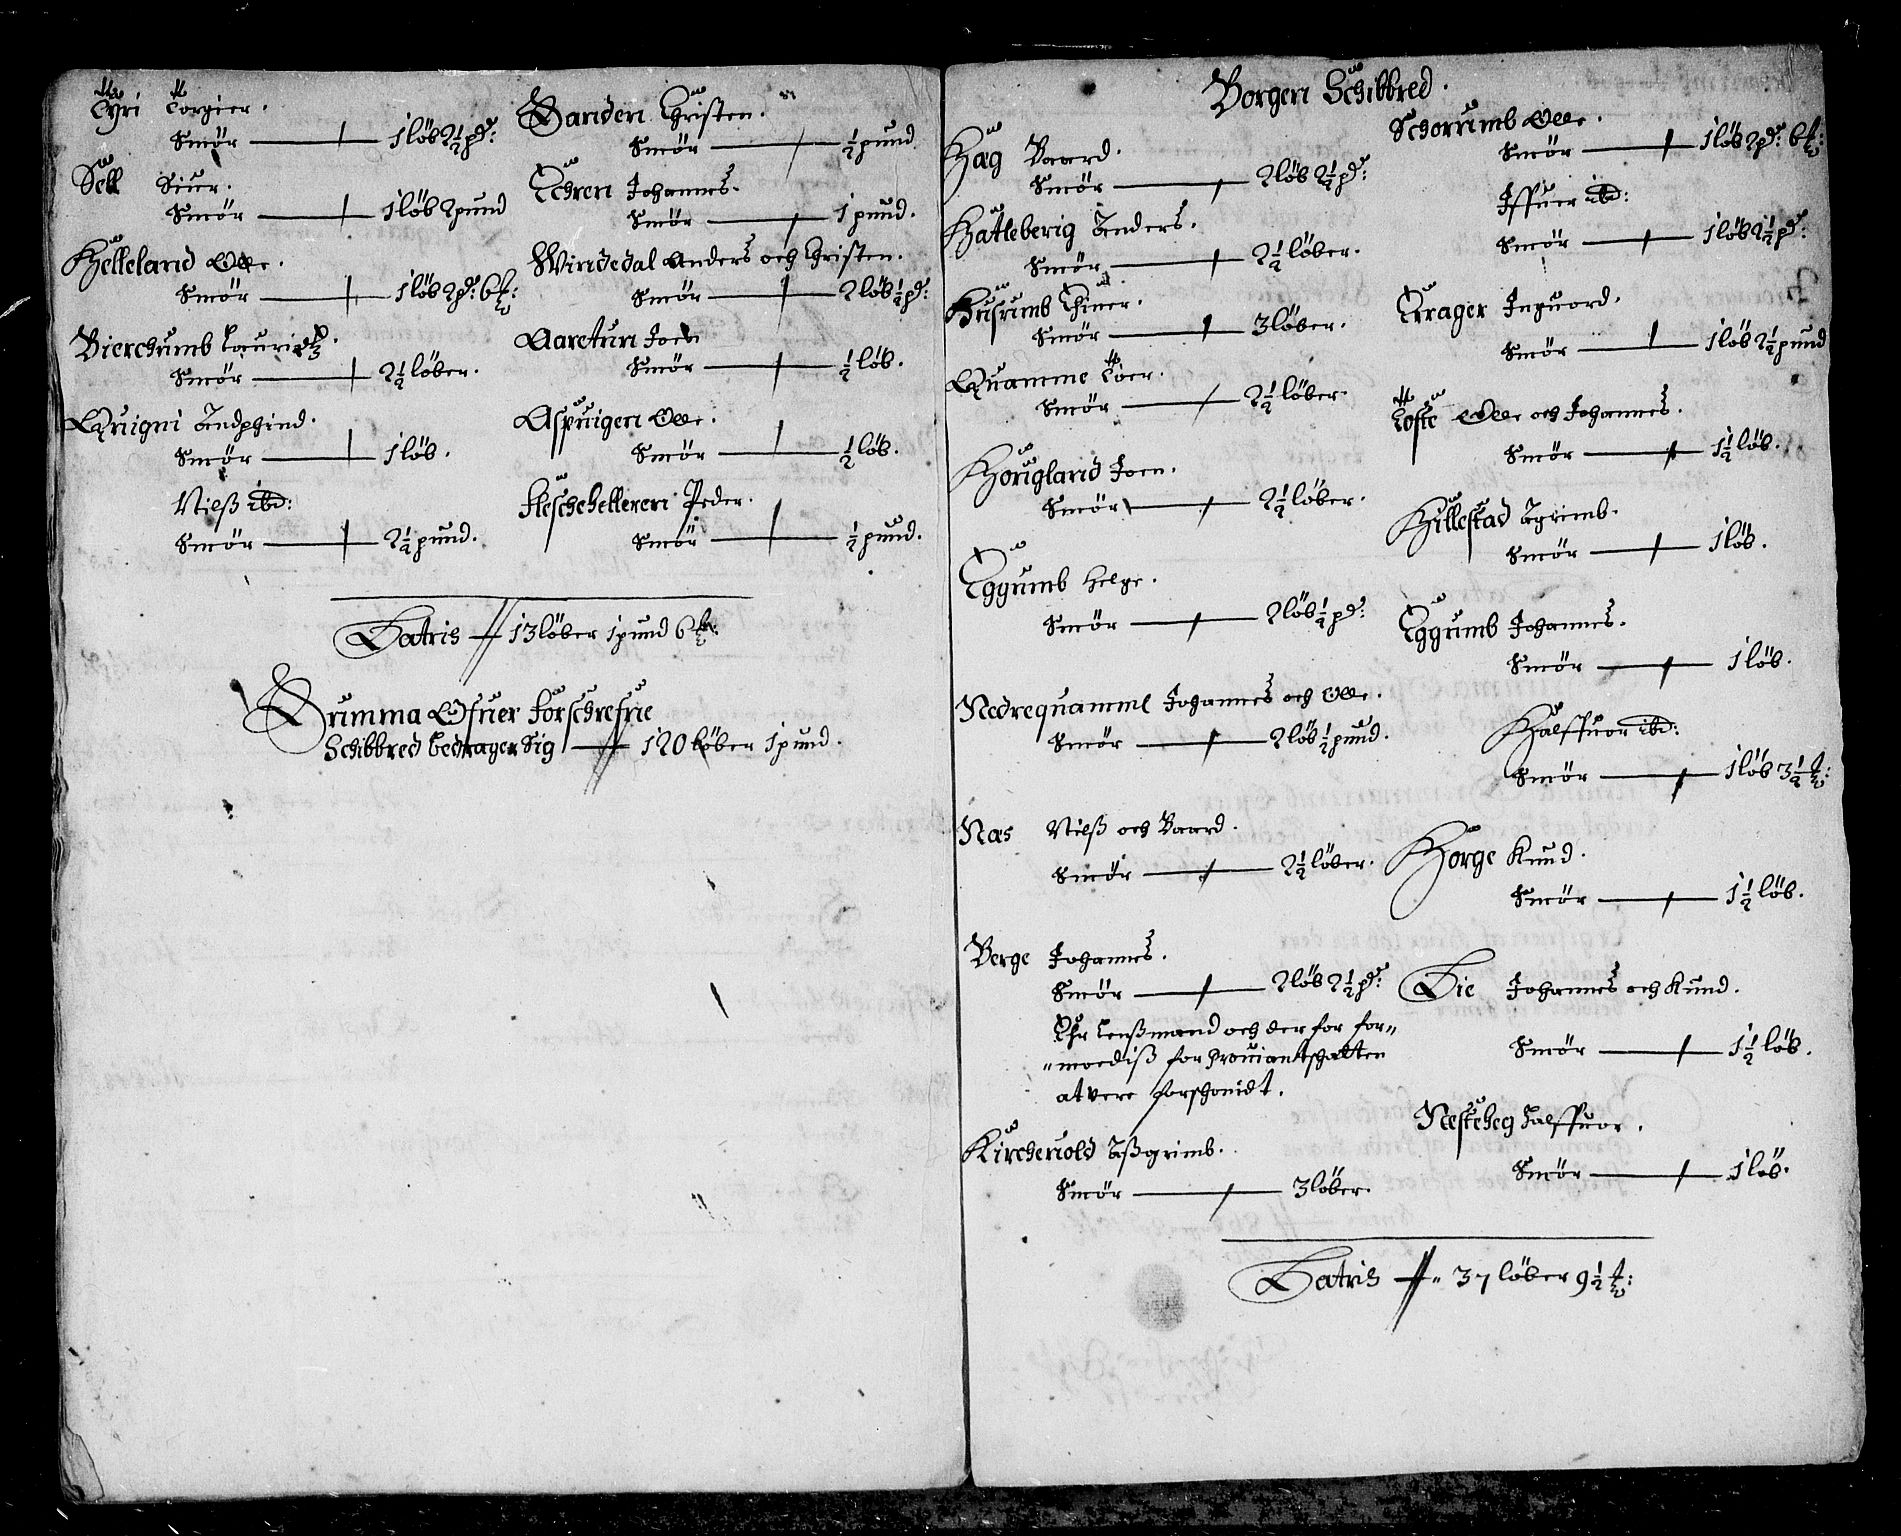 Tyri Torgier.
Smör — 1 löb 2½ pd:
Sell Siur.
Smör — 1 löb 2 pund
Helleland Olle.
Smör — 1 löb 2 pd: 6 ℔:
Bierchumb Lauridtz.
Smör — 2½ löber.
Quigni Andphind.
Smör — 1 löb.
Nilß ibd:
Smör — 2½ pund.
Sanden Christen.
Smör — ½ pund
Echren Johannes.
Smör — 1 pund.
Windedal Anders och Christen.
Smör — 2 löb ½ pd:
Aaretun Joen
Smör — ½ löb.
Aspuigen Olle.
Smör — ½ löb.
Fleschehelleren Peder.
Smör — ½ pund.
Latris — 13 löber 1 pund 6 ℔:
Summa Ofuer forschrefne
Schibbred bedrager Sig — 120 löber 1 pund.
Borgen Schibbred.
Hæg Baard.
Smör — 2 löb 2½ pd:
Hatleberig Anders.
Smör — 2½ löber.
Husumb Einer.
Smör — 3 löber.
Quamme Toer.
Smör — 2½ löber.
Hougland Joen.
Smör — 2½ löber.
Eggumb Helge.
Smör — 2 löb ½ pd:
Nedrequamme Johannes och Olle.
Smör — 2 löb ½ pund.
Næs Nilß och Baard.
Smör — 2½ löber.
Berge Johannes.
Smör — 2 löb 2½ pd:
Ehr Lenßmand och der for for=
=moediß for Prouiantschatten
at vere forschonidt.
Kircheuold Aßgrimb.
Smör — 3 löber.
Schorumb Olle.
Smör — 1 löb 2 pd: 6 ℔:
Iffuer ibd:
Smör — 1 löb 2½ pd:
Erager Inguord.
Smör — 1 löb 2½ pund
Tofte Olle och Johannes.
Smör — 1½ löb.
Hillestad Agrimb.
Smör — 1 löb.
Eggumb Johannes.
Smör — 1 löb.
Halffuor ibd:
Smör — 1 löb 3½ ℔:
Horge Knud.
Smör — 1½ löb.
Lie Johannes och Knud.
Smör — 1½ löb.
Nesteheg Halffuor.
Smör — 1 löb.
Latris — 37 löber 9½ ℔: